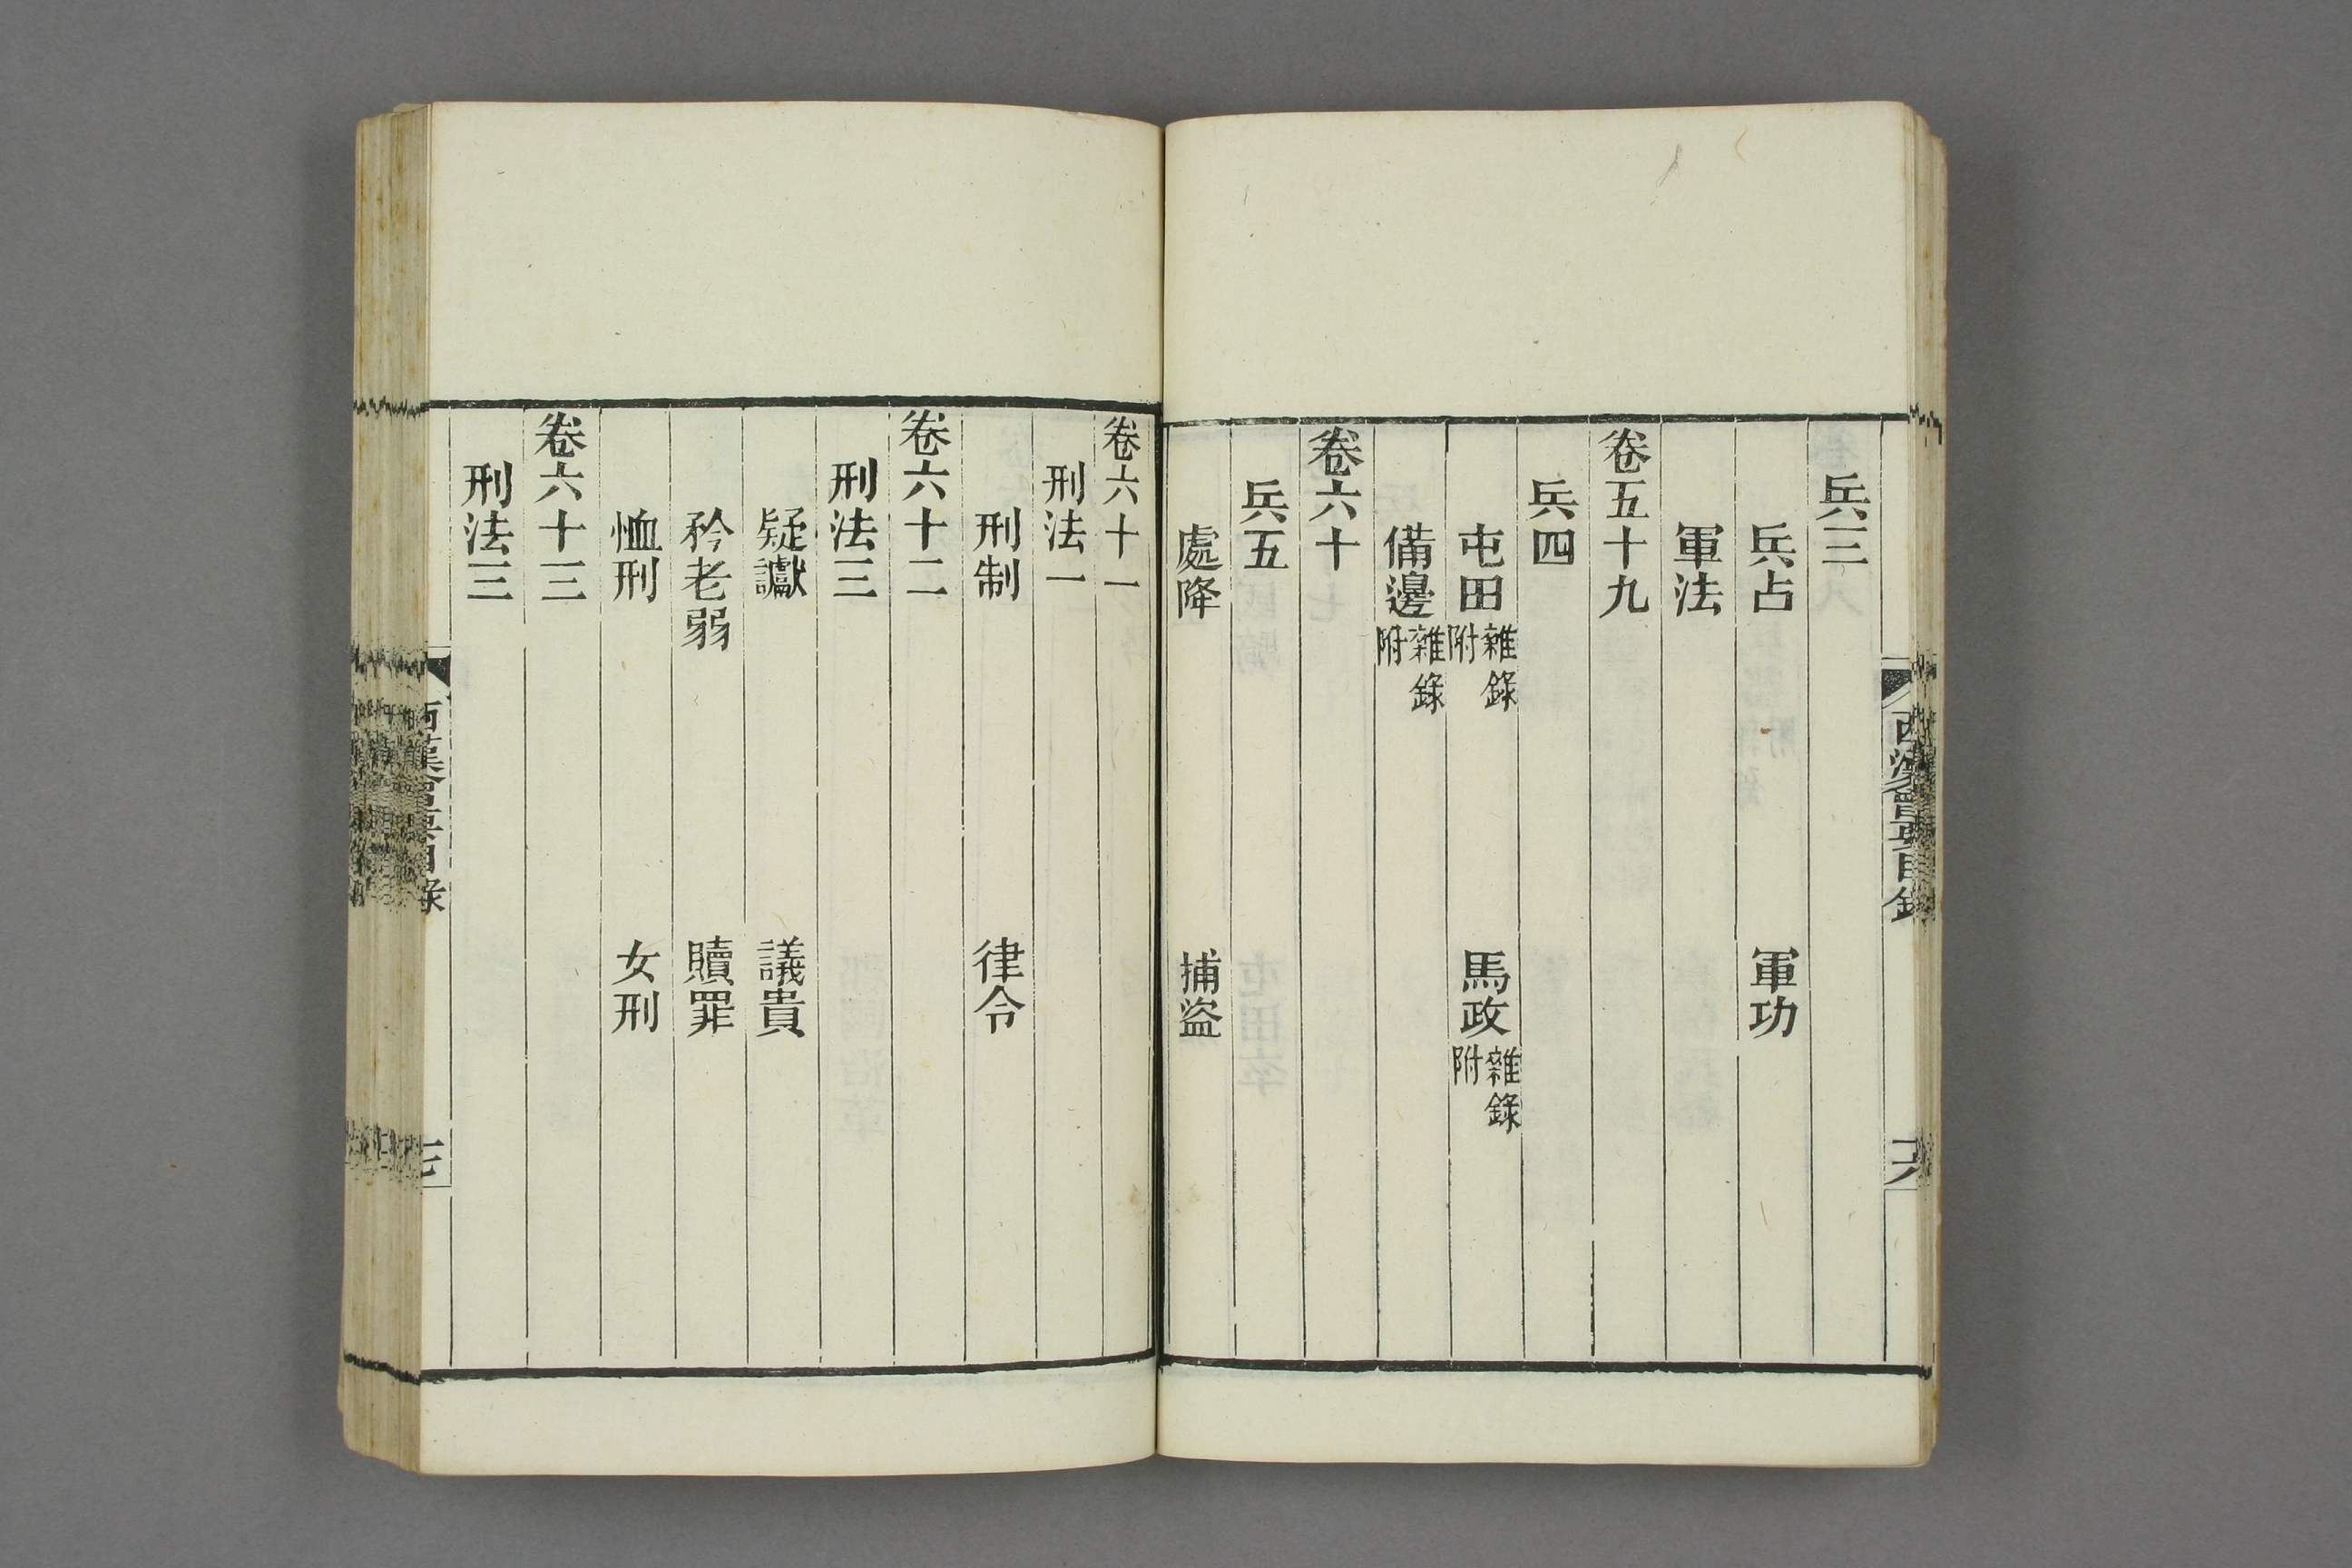 兵三
兵占　軍功
軍法
卷五十九
兵四
屯田雜錄附　馬政雜錄附
備邊雜錄附
卷六十
兵五
處降　捕盜
卷六十一
刑法一
刑制　律令
卷六十二
刑法三
疑讞　議貴
矜老弱　贖罪
恤刑　女刑
卷六十三
刑法三
西漢會要目錄